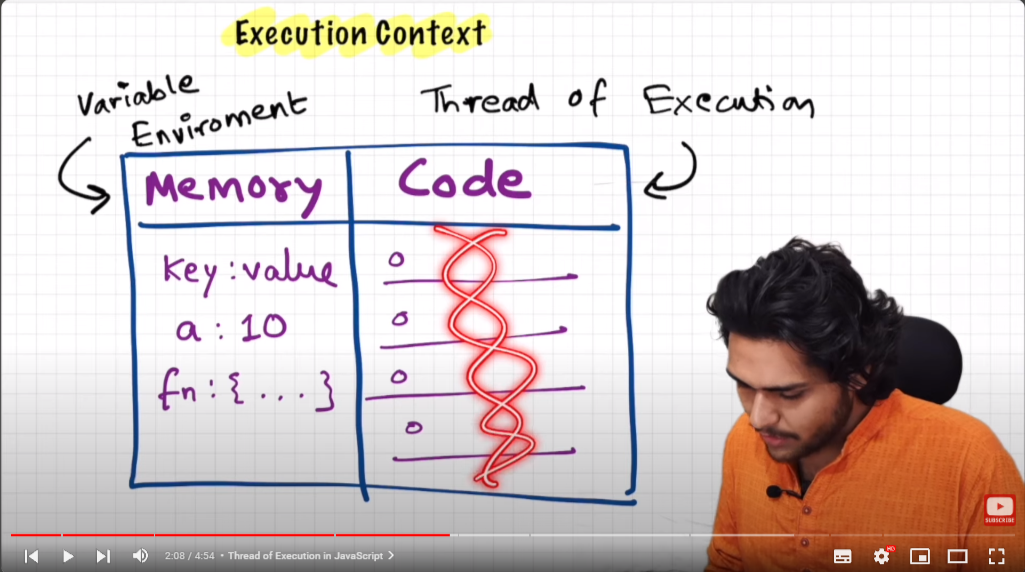 Execution Context
Variable
Enviroment
Thread of Execution
Memory
Code
key : value
a : 10
fn : { . . . }
SUBSCRIBE
2:08 / 4:54 • Thread of Execution in JavaScript
HD